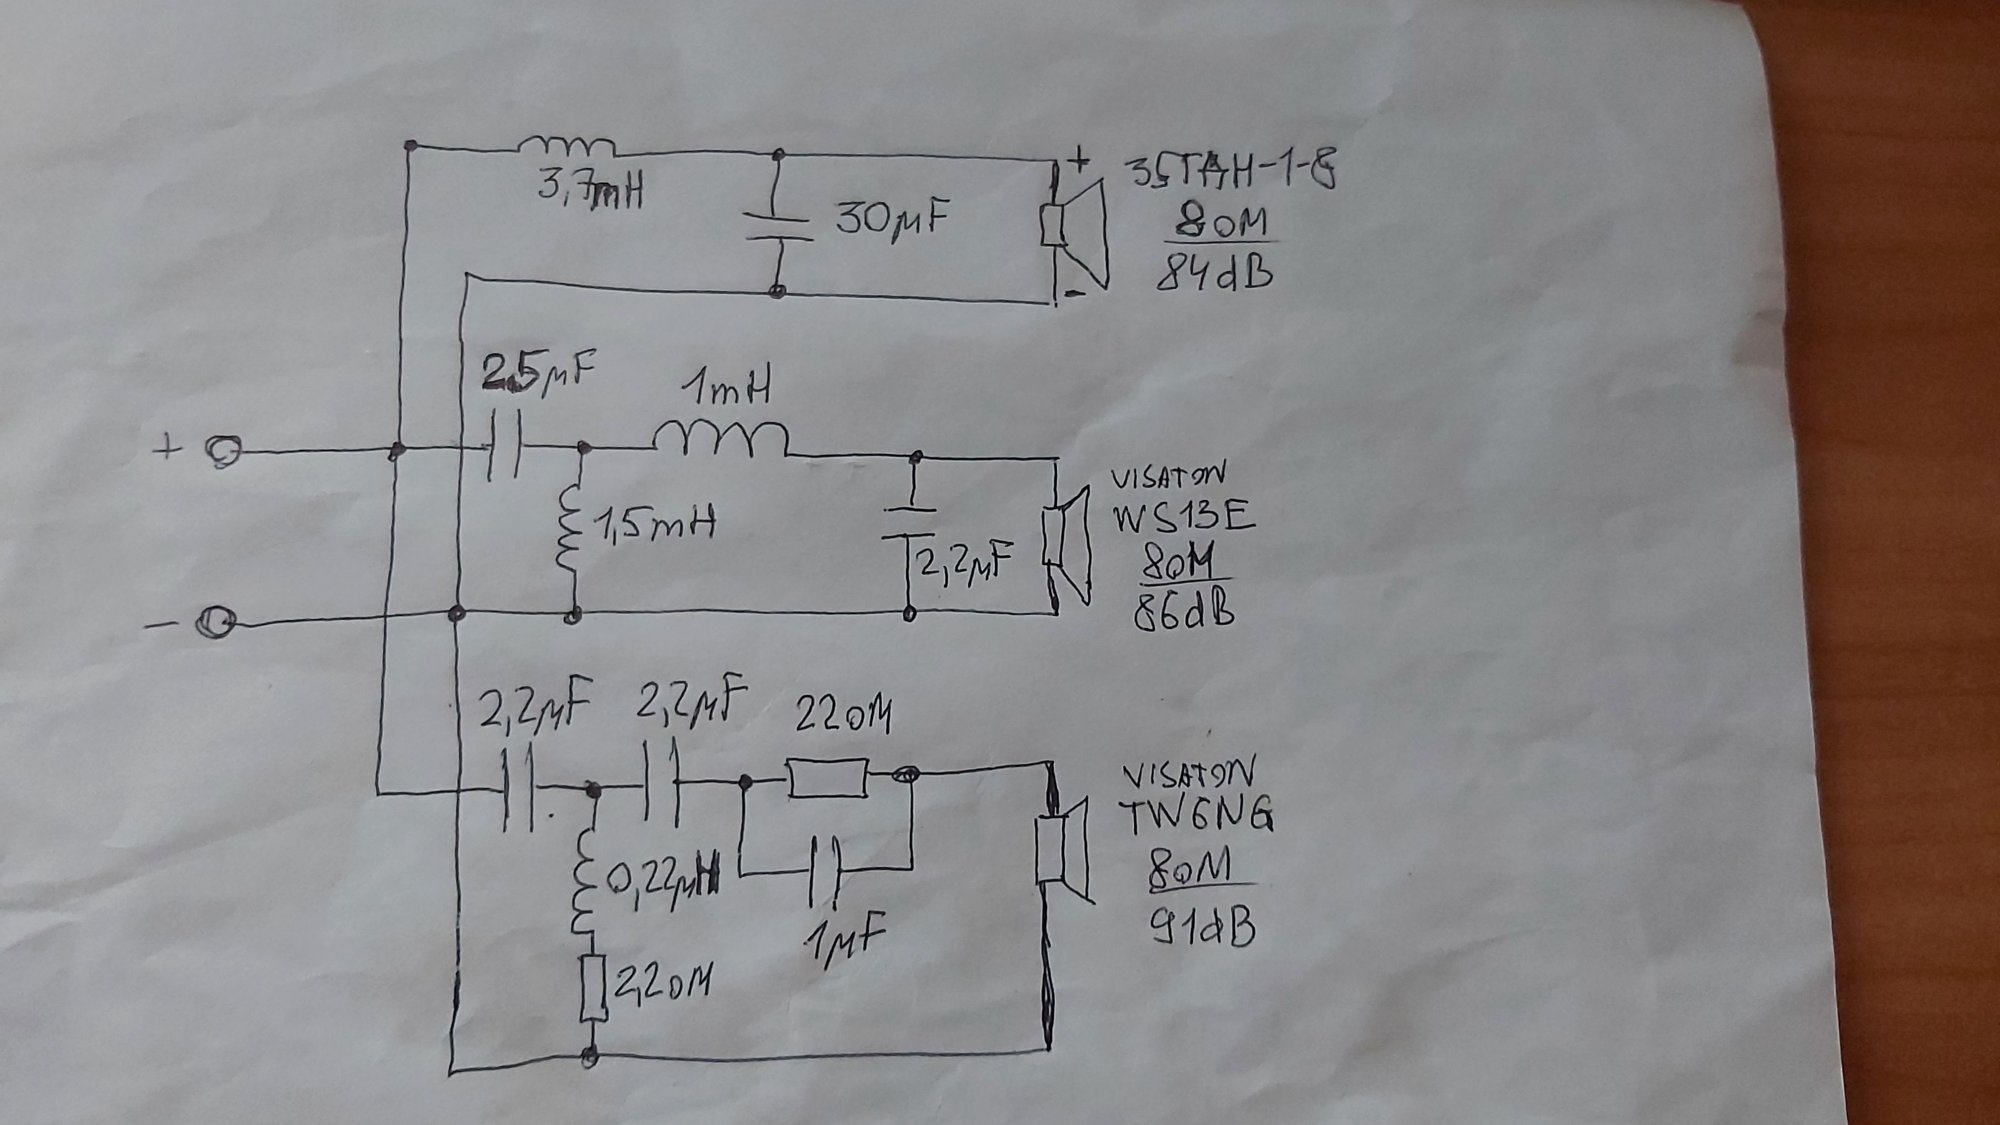 3,7mH
+
35TAH-1-8
30µF
8OM
84dB
-
2,5µF
1mH
+
VISATON
WS13E
1,5mH
8OM
2,2µF
86dB
-
2,2µF
2,2µF
22OM
VISATON
TW6NG
0,22µH
8OM
1µF
91dB
2,2OM